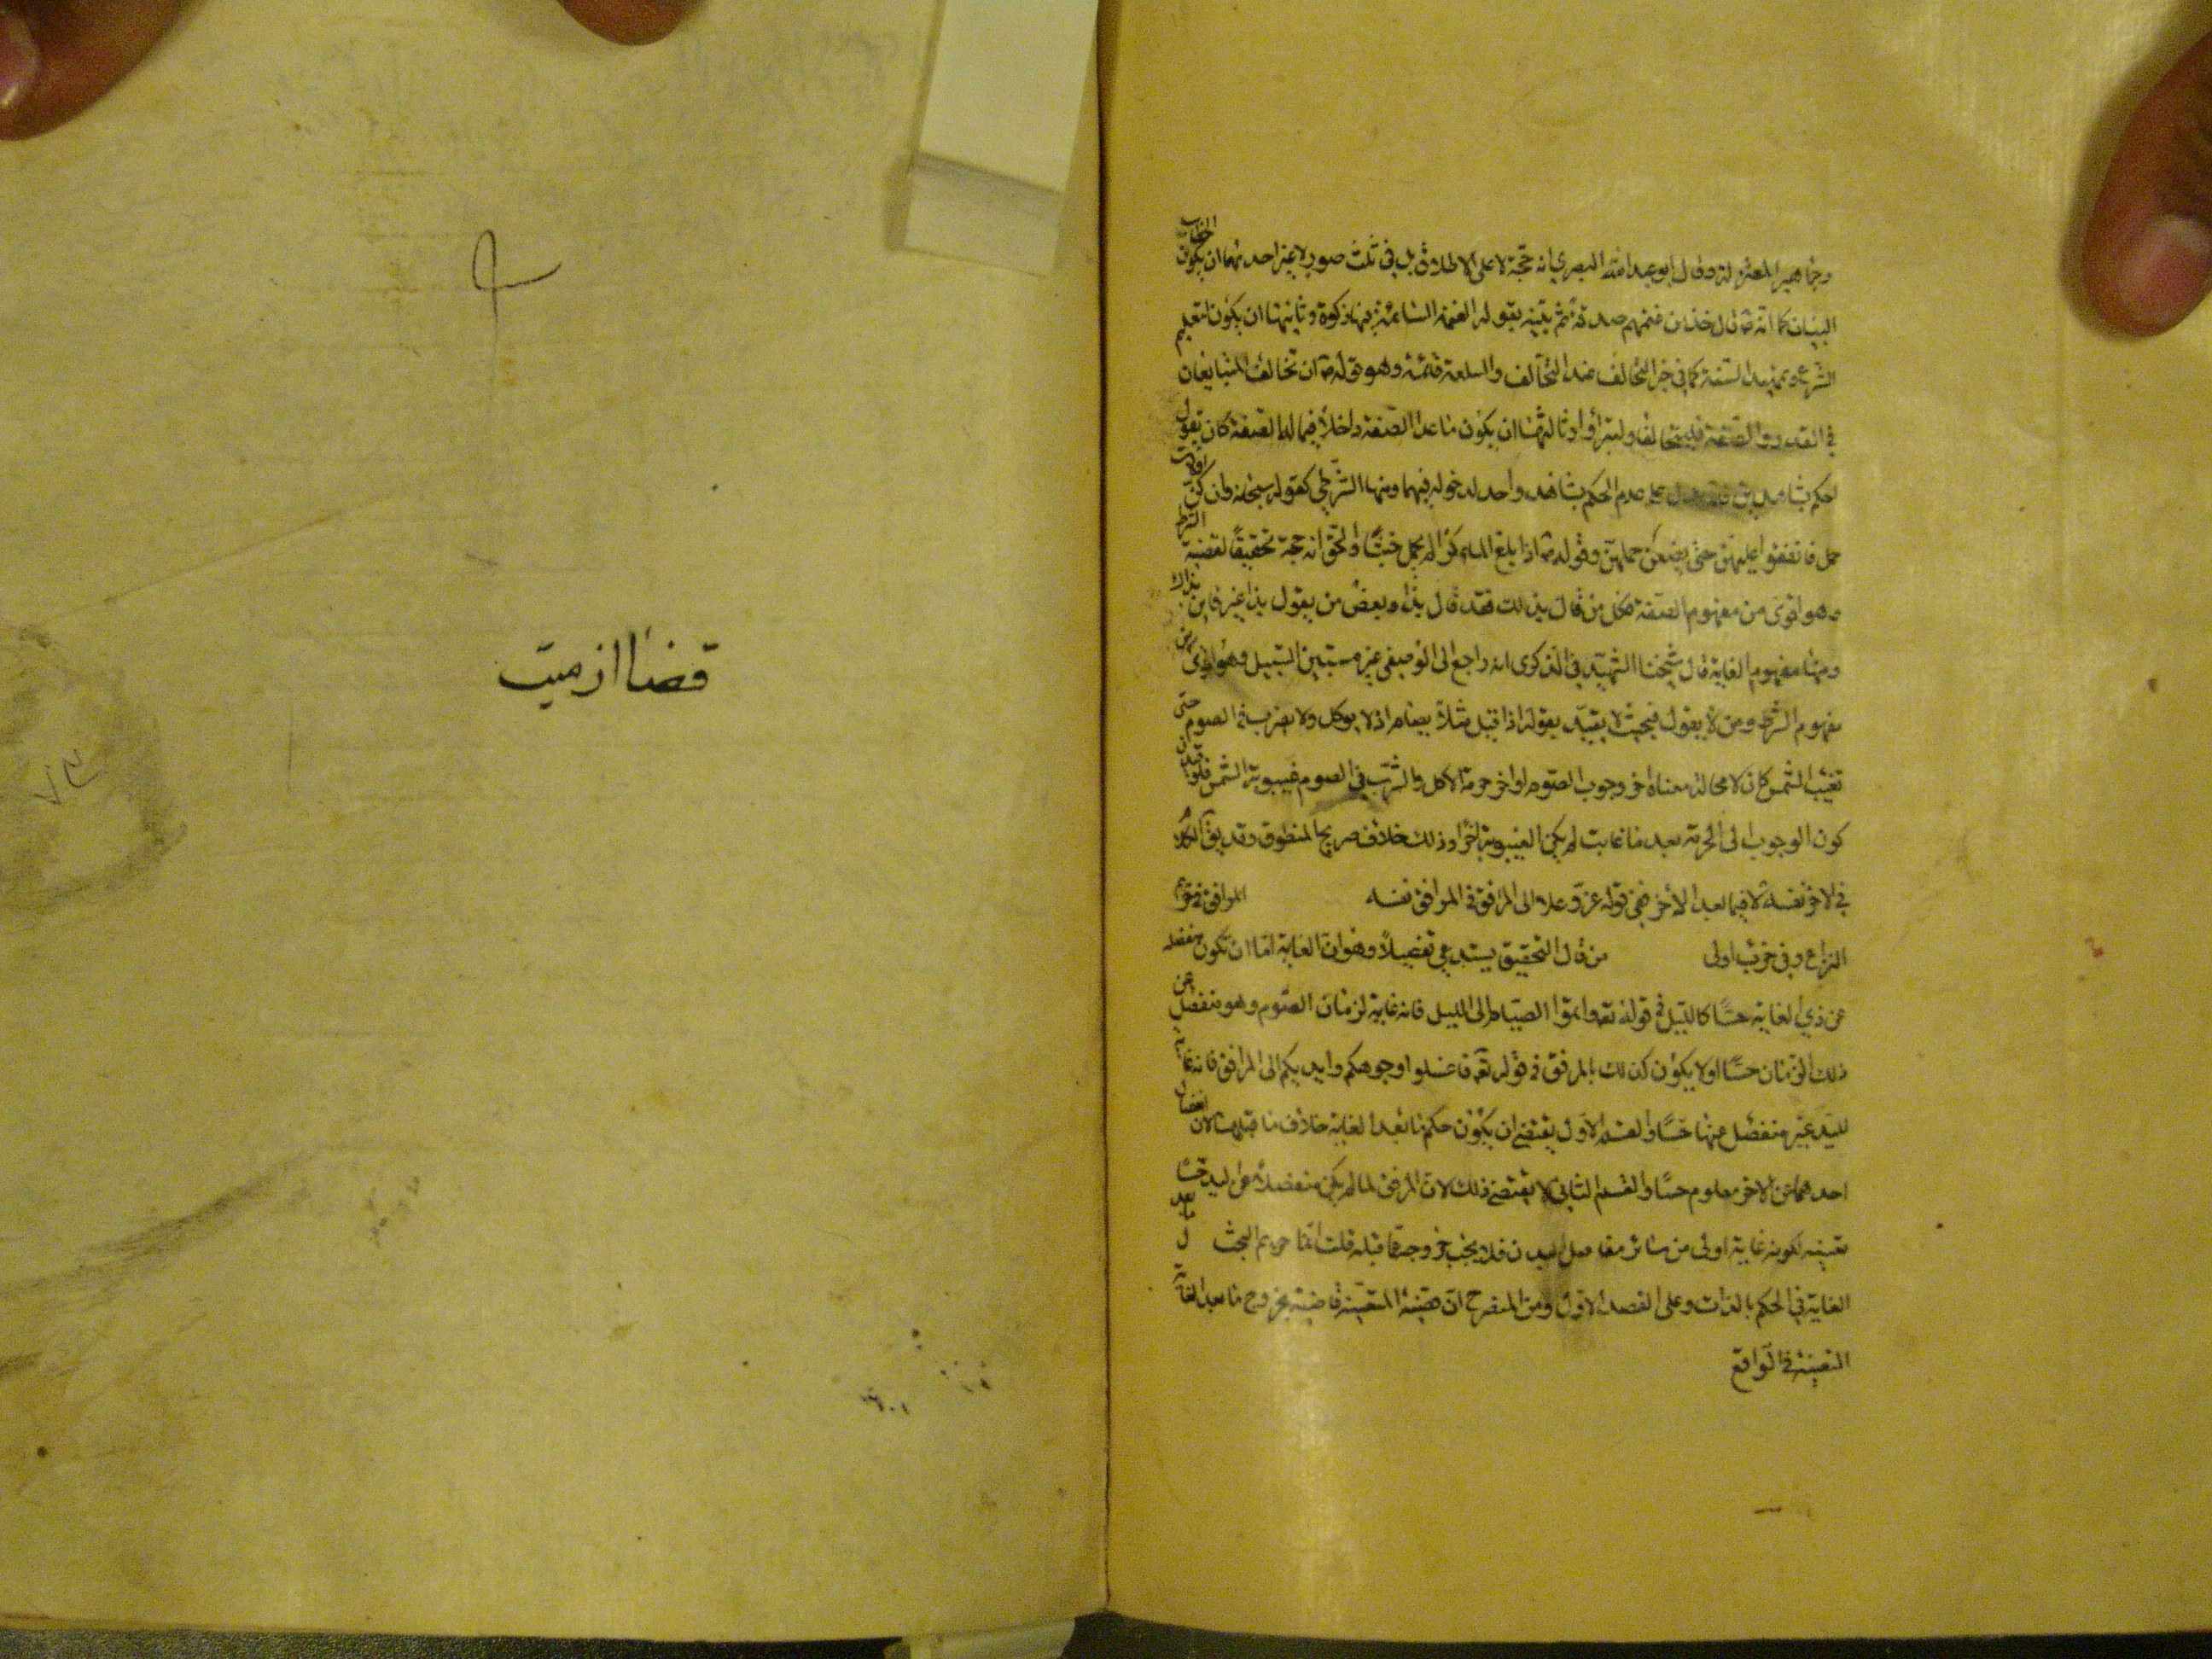 وجماهير المعتزلة وقال ابو عبد الله البصري انه حجة لا على الاطلاق بل في ثلث صور لا غير احدىهما ان يكون الخطاب
البيان كما انه ص قال خذ من غنمهم صدقة ثم بينه بقوله الغنم السائمة فيها زكوة وثانيتها ان يكون لتعليم
الشرع وتمهيد السنة كما في خبر التخالف عند التخالف والسلعة قائمة وهو قوله ص ان تخالف المتبايعان
في القدر والصفة فليتحالفا وليترادا وثالثتها ان يكون ما عدا الصفة داخلا فيما له الصفة كان تقول
احكم بشاهدين فانه يدل على عدم الحكم بشاهد واحد لدخوله فيهما ومنها الشرطي كقوله سبحانه وان كن اولات
حمل فانفقوا عليهن حتى يضعن حملهن وقوله ص اذا بلغ الماء كرا لم يحمل خبثا والحق انه حجة تحقيقا لقضية الشرط
وهو اقوى من مفهوم الصفة فكل من قال بذلك فقد قال بذا وبعض من يقول بذا غير قايل بذاك
ومنها مفهوم الغاية قال شيخنا الشهيد في الذكرى انه راجع الى الوصفي غير مستبين السبيل وهو اقوى من
مفهوم الشرط ومن لا يقول فبحيث لا يقيد بقوله اذا قيل مثلا بصيام اذ لا يوكل ولا يشرب في الصوم حتى
تغيب الشمس كان لا محالة معناه اخر وجوب الصوم او اخر حرمة الاكل والشرب في الصوم غيبوبة الشمس فلو قدرن
كون الوجوب الى الحرمة بعد ما غابت لم يكن الغيبوبة اخرا وذلك خلاف صريح المنطوق وقد يق الكلام
في الاخر نفسه لا فيما بعد الاخر ففي قوله عز وعلا الى المرافق في المرافق نفسه المرافق في قوع
النزاع وفي حزب اولى من قال التحقيق يستدعي تفصيلا وهو ان الغاية اما ان تكون منفصله
عن ذي الغاية حسا كالليل في قوله تعه واتموا الصيام الى الليل فانه غاية لزمان الصوم وهو منفصل عن
ذلك الزمان حسا او لا يكون كذلك بالمرفق في قوله تعه فاغسلوا وجوهكم وايديكم الى المرافق فانه غاية
لليد غير منفصل عنها حسا والقسم الاول يقتضي ان يكون حكم ما بعد الغاية خلاف ما قبلها لان انفصال
احدهما عن الاخر معلوم حسا والقسم الثاني لا يقتضي ذلك لان المرفق لما لم يكن منفصلا عن اليد حسا
تعينه لكونه غاية اولى من سائر مفاصل اليد فلا يجب خروجه عما قبله قلت انما حريم البحث ل ما بعد
الغاية في الحكم بالذات وعلى القصد الاول ومن المنصرح ان هيئة المتعينة قاضية بخروج ما بعد الغاية
المتعينة في الواقع
قضا از ميت